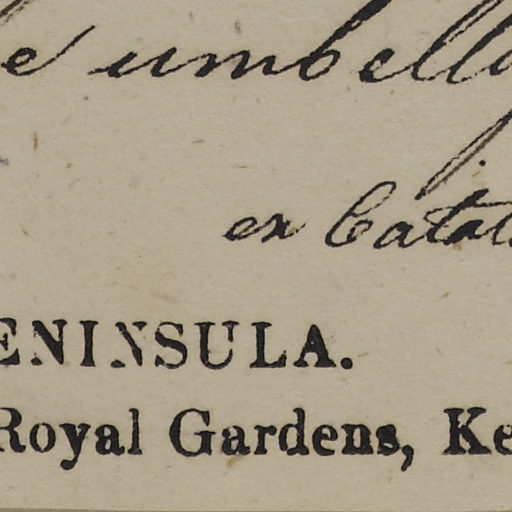 e umbell
ex Catal
ENINSULA.
Royal Gardens, Ke